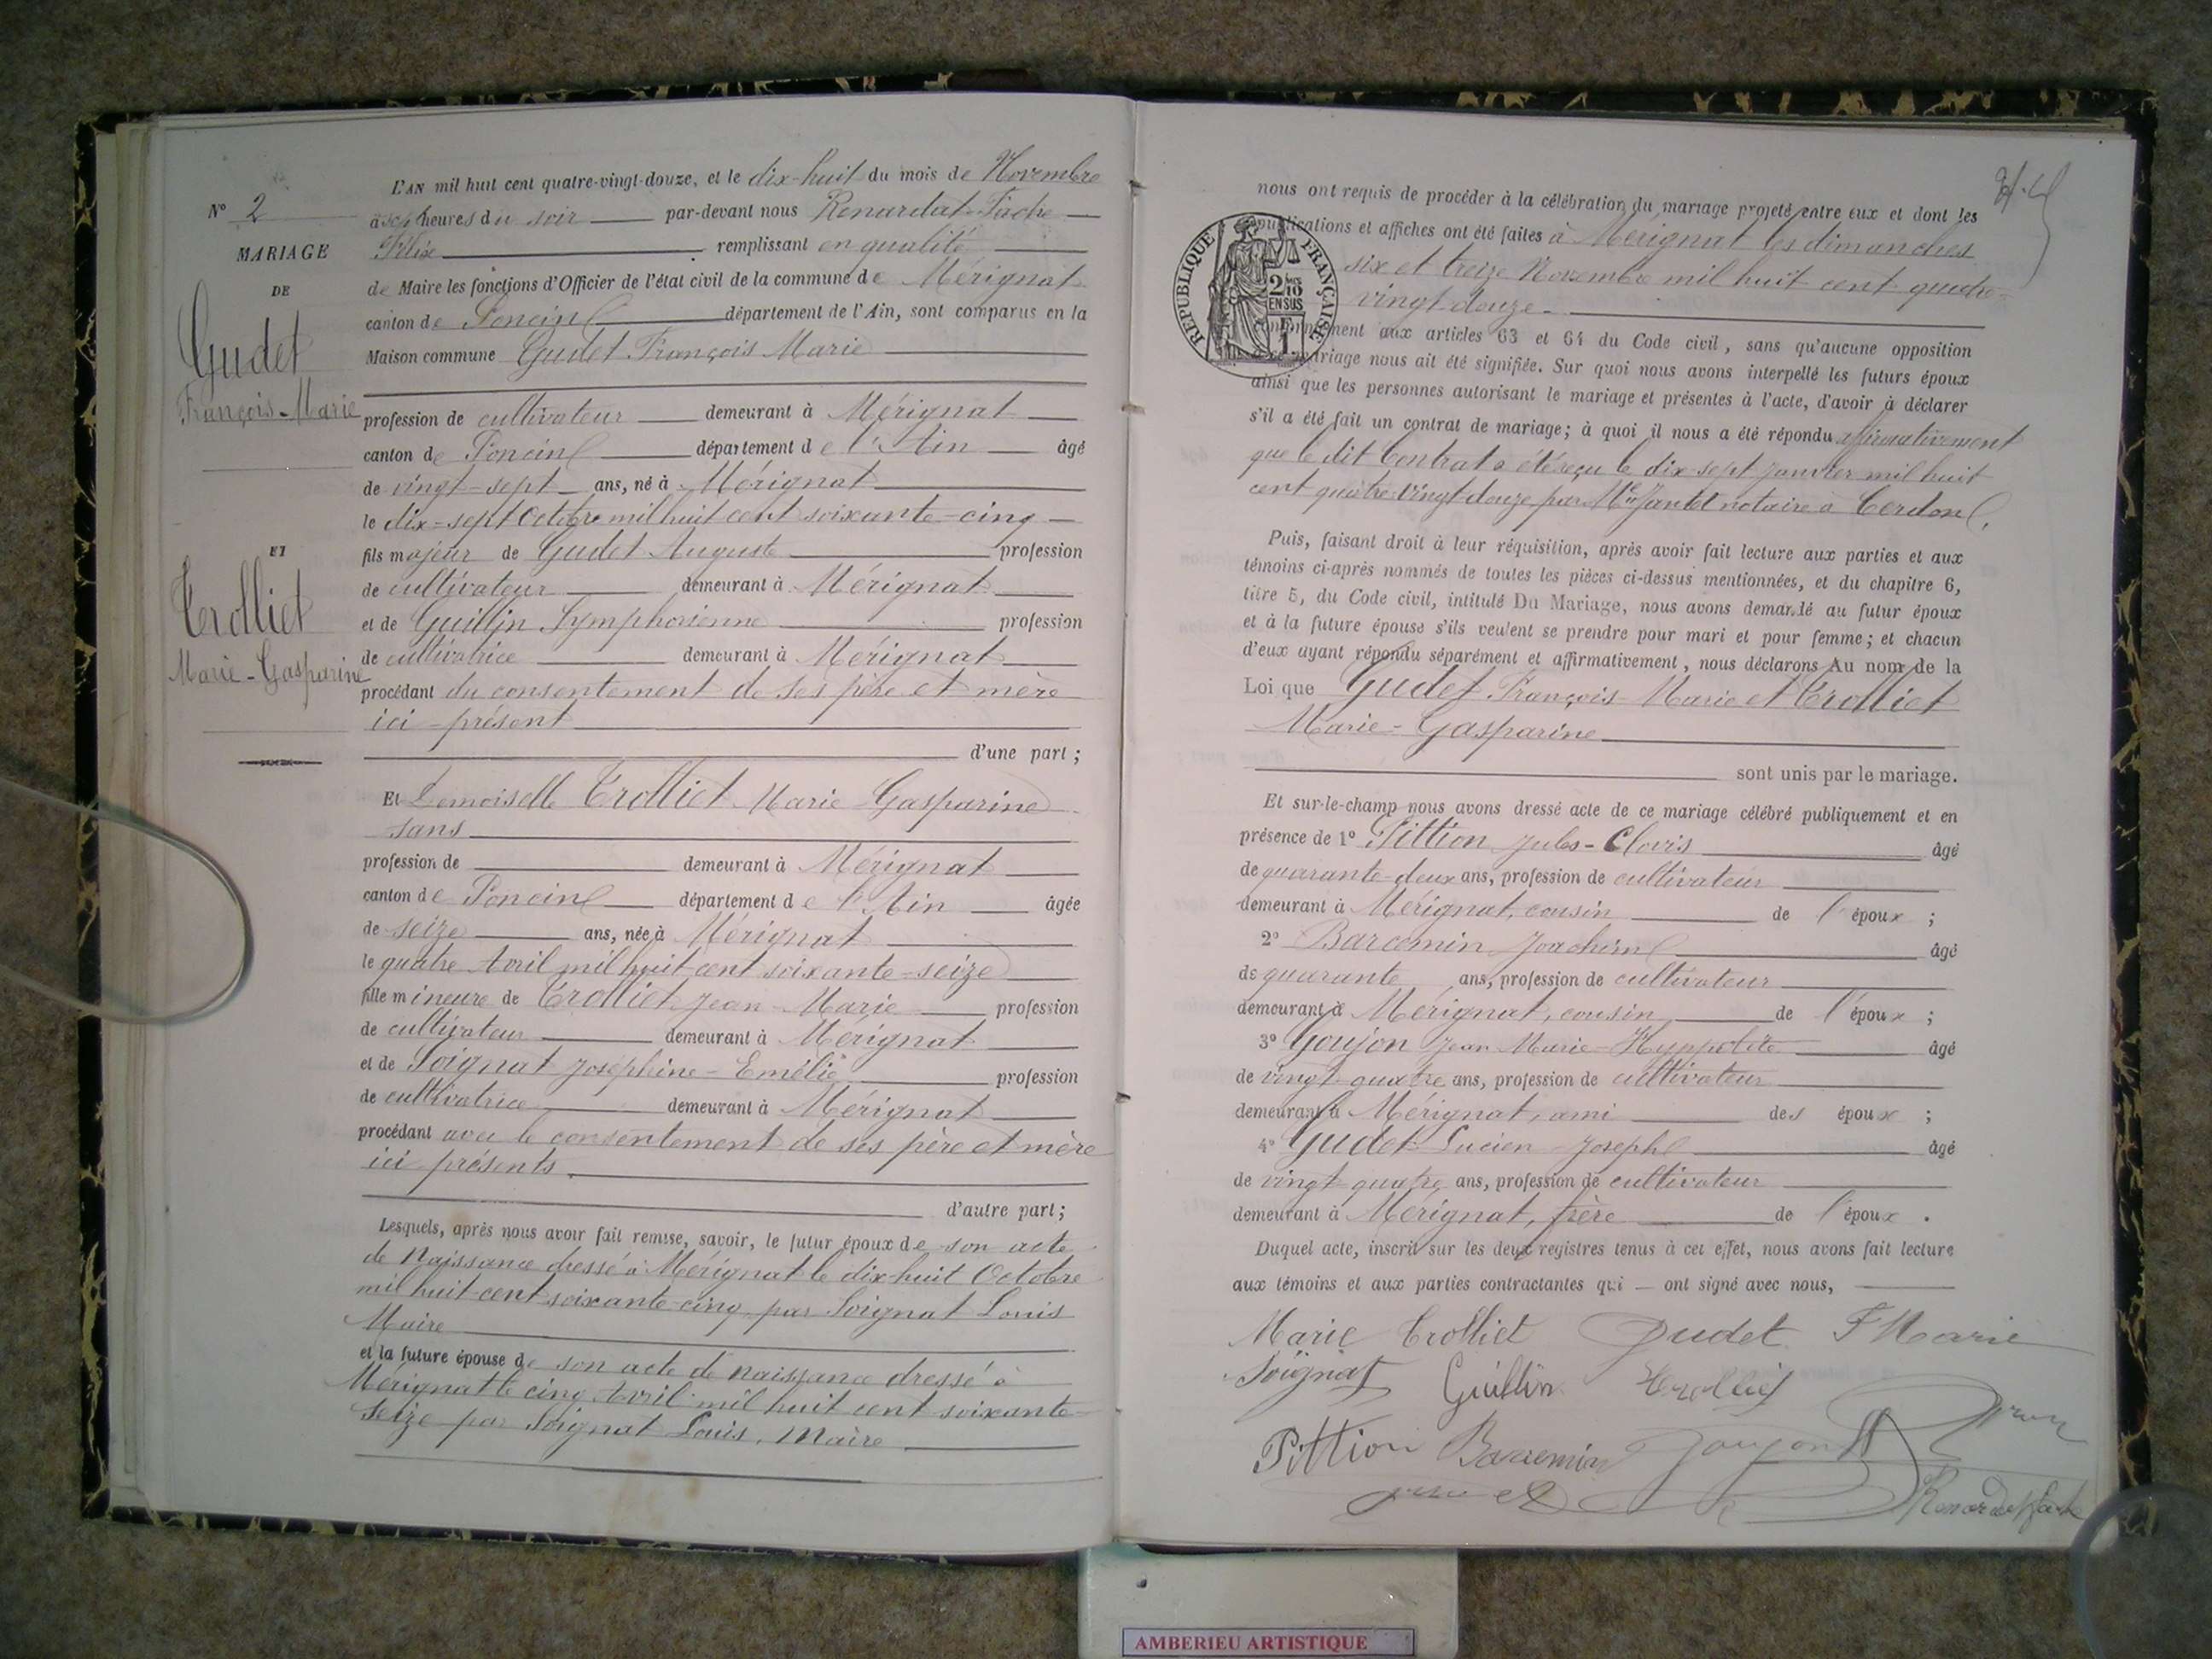 N° 2
MARIAGE
DE
Gudet
François-Marie
ET
Trolliet
Marie-Gasparine
L'AN mil huit cent quatre-vingt-douze, et le dix-huit du mois de Novembre
à sept heures du soir par-devant nous Renardat-Fache
Félix remplissant en qualité
de Maire les fonctions d'Officier de l'état civil de la commune de Mérignat
canton de Poncin département de l'Ain, sont comparus en la
Maison commune Gudet François Marie
profession de cultivateur demeurant à Mérignat
canton de Poncin département de l'Ain âgé
de vingt-sept ans, né à Mérignat
le dix-sept Octobre mil huit cent soixante-cinq
fils majeur de Gudet Auguste profession
de cultivateur demeurant à Mérignat
et de Guillin Symphorienne profession
de cultivatrice demeurant à Mérignat
procédant du consentement de ses père et mère
ici-présent
d'une part ;
Et Demoiselle Trolliet Marie Gasparine
sans
profession de demeurant à Mérignat
canton de Poncin département de l'Ain âgée
de seize ans, née à Mérignat
le quatre Avril mil huit cent soixante-seize
fille mineure de Trolliet Jean-Marie profession
de cultivateur demeurant à Mérignat
et de Soignat Joséphine-Emélie profession
de cultivatrice demeurant à Mérignat
procédant avec le consentement de ses père et mère
ici présents.
d'autre part ;
Lesquels, après nous avoir fait remise, savoir, le futur époux de son acte
de Naissance dressé à Mérignat le dix-huit Octobre
mil huit cent soixante-cinq par Soignat Louis
Maire
et la future épouse de son acte de naissance dressé à
Mérignat le cinq Avril mil huit cent soixante-
seize par Soignat Louis, Maire
nous ont requis de procéder à la célébration du mariage projeté entre eux et dont les
publications et affiches ont été faites à Mérignat les dimanches
six et treize Novembre mil huit cent quatre-
vingt-douze.
RÉPUBLIQUE FRANÇAISE
2/10 EN SUS
conformément aux articles 63 et 64 du Code civil, sans qu'aucune opposition
à ce mariage nous ait été signifiée. Sur quoi nous avons interpellé les futurs époux
ainsi que les personnes autorisant le mariage et présentes à l'acte, d'avoir à déclarer
s'il a été fait un contrat de mariage ; à quoi il nous a été répondu affirmativement
que le dit Contrat a été reçu le dix-sept janvier mil huit
cent quatre vingt-douze par Me Jantet notaire à Cerdon.
Puis, faisant droit à leur réquisition, après avoir fait lecture aux parties et aux
témoins ci-après nommés de toutes les pièces ci-dessus mentionnées, et du chapitre 6,
titre 5, du Code civil, intitulé Du Mariage, nous avons demandé au futur époux
et à la future épouse s'ils veulent se prendre pour mari et pour femme ; et chacun
d'eux ayant répondu séparément et affirmativement, nous déclarons Au nom de la
Loi que Gudet François-Marie et Trolliet
Marie-Gasparine
sont unis par le mariage.
Et sur-le-champ nous avons dressé acte de ce mariage célébré publiquement et en
présence de 1° Pittion Jules-Clovis âgé
de quarante-deux ans, profession de cultivateur
demeurant à Mérignat, cousin de l'époux ;
2° Barcomin Joachim âgé
de quarante ans, profession de cultivateur
demeurant à Mérignat, cousin de l'époux ;
3° Goujon Jean Marie-Hyppolite âgé
de vingt-quatre ans, profession de cultivateur
demeurant à Mérignat, ami des époux ;
4° Gudet Lucien-Joseph âgé
de vingt-quatre ans, profession de cultivateur
demeurant à Mérignat, frère de l'époux.
Duquel acte, inscrit sur les deux registres tenus à cet effet, nous avons fait lecture
aux témoins et aux parties contractantes qui ont signé avec nous,
Marie Trolliet Gudet F Marie
Soignat Guillin Trolliet
Pittion Goujon
Renardat Fache
AMBERIEU ARTISTIQUE